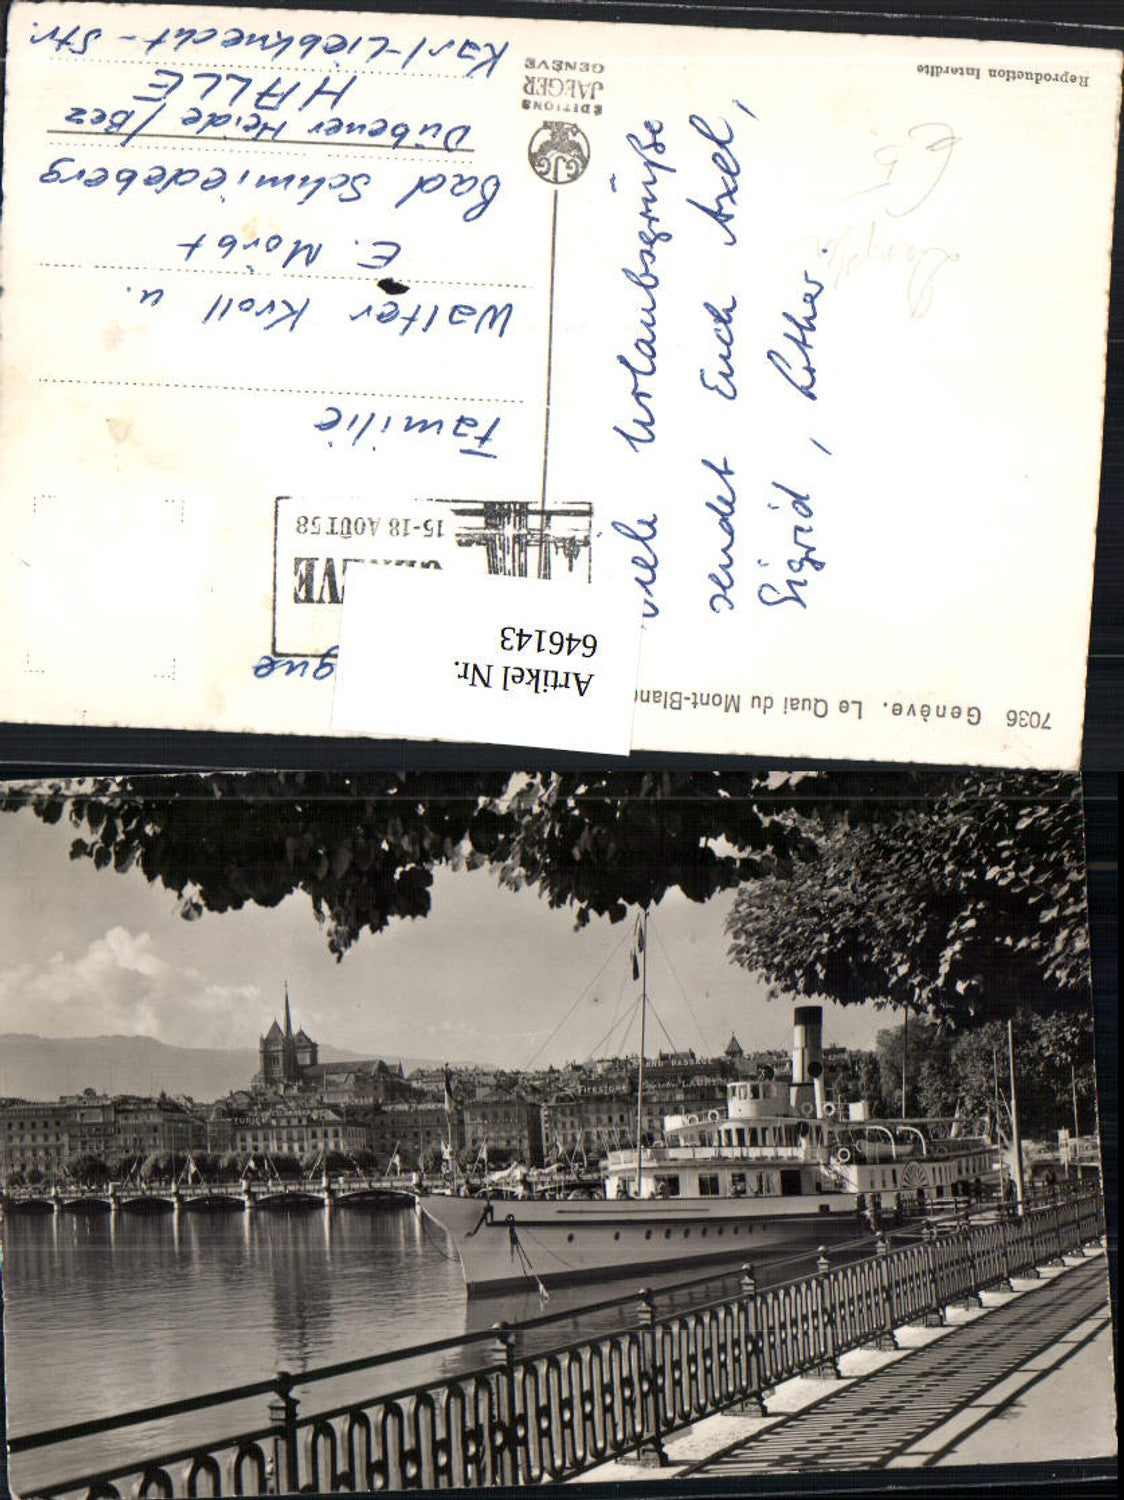 7036 Genève. Le Quai du Mont-Blanc
Artikel Nr.
646143
GENÈVE
15-18 AOÛT 58
Viele Urlaubsgrüße
sendet Euch Axel,
Sigrid, Lothar
Familie
Walter Kroll u.
E. Morbt
Bad Schmiedeberg
Dübener Heide / Bez
HALLE
Karl-Liebknecht-Str.
GJG
EDITIONS
JAEGER
GENÈVE
Reproduction interdite
Firestone
ZURICH